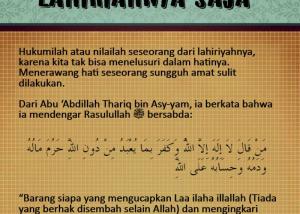 LAHIRIAHNYA SAJA
Hukumilah atau nilailah seseorang dari lahiriyahnya,
karena kita tak bisa menelusuri dalam hatinya.
Menerawang hati seseorang sungguh amat sulit
dilakukan.
Dari Abu ‘Abdillah Thariq bin Asy-yam, ia berkata bahwa
ia mendengar Rasulullah ﷺ bersabda:
مَنْ قَالَ لَا إِلَهَ إِلَّا اللَّهُ وَكَفَرَ بِمَا يُعْبَدُ مِنْ دُونِ اللَّهِ حَرُمَ مَالُهُ
وَدَمُهُ وَحِسَابُهُ عَلَى اللَّهِ
“Barang siapa yang mengucapkan Laa ilaha illallah (Tiada
yang berhak disembah selain Allah) dan mengingkari